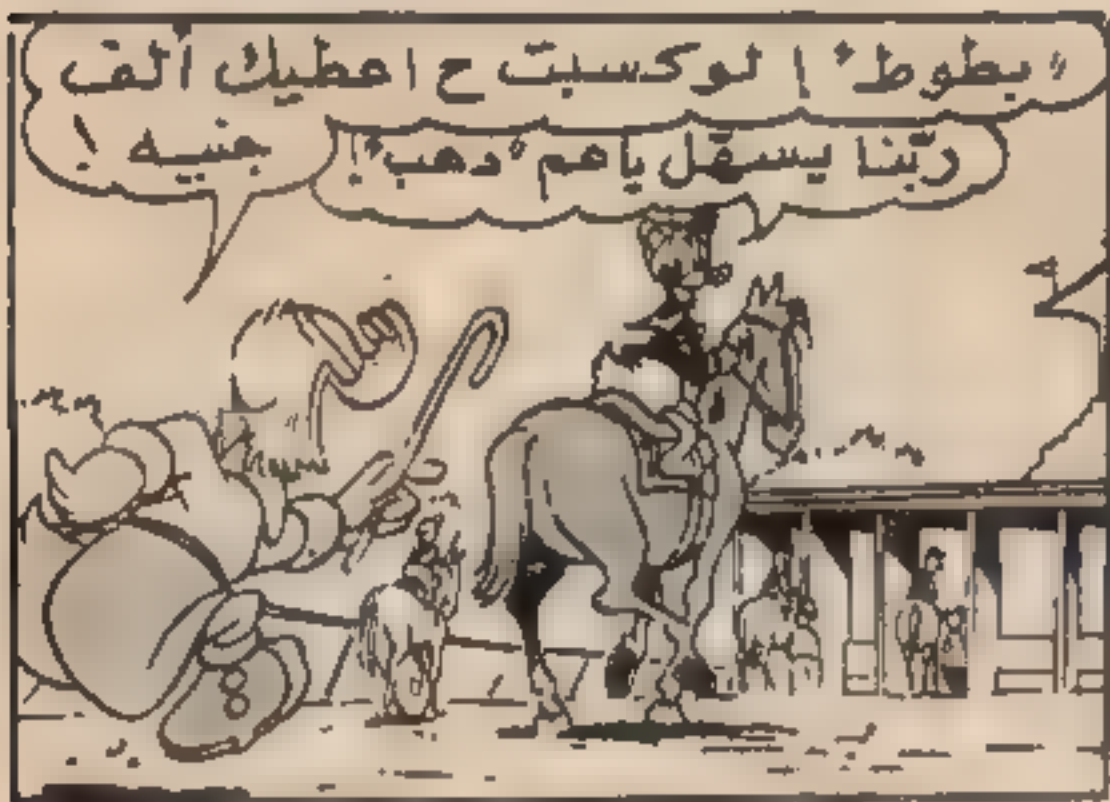 "بطوط" ! لو كسبت ح اعطيك ألف
جنيه !
ربّنا يسهّل يا عم "دهب" !